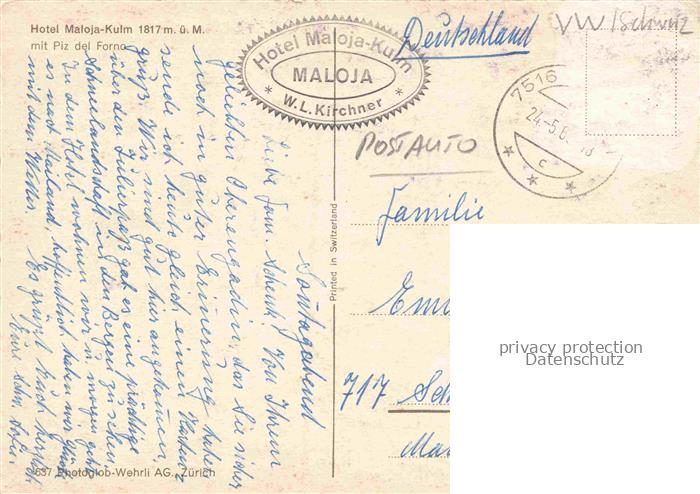 Hotel Maloja-Kulm 1817 m. ü. M.
mit Piz del Forno
Hotel Maloja-Kulm
MALOJA
* W. L. Kirchner *
Deutschland
VW/Schweiz
7516
24.-5.6
18
c
POSTAUTO
Sonntagabend
Liebe Fam. Schenk! Von Ihrem
geliebten Oberengadin, das Sie sicher
noch in guter Erinnerung haben
sende ich heute gleich einen Karten
gruß. Wir sind gut hier angekommen,
über den Julierpaß gab es eine prächtige
Schneelandschaft in den Bergen zu sehen
In dem Hotel wohnen wir u. morgen geht
es nach Mailand, hoffentlich haben wir Glück
mit dem Wetter. Es grüßt Euch herzlich
Eure
Familie
Emi
717 Sch
Printed in Switzerland
637 Photoglob-Wehrli AG., Zürich
privacy protection
Datenschutz